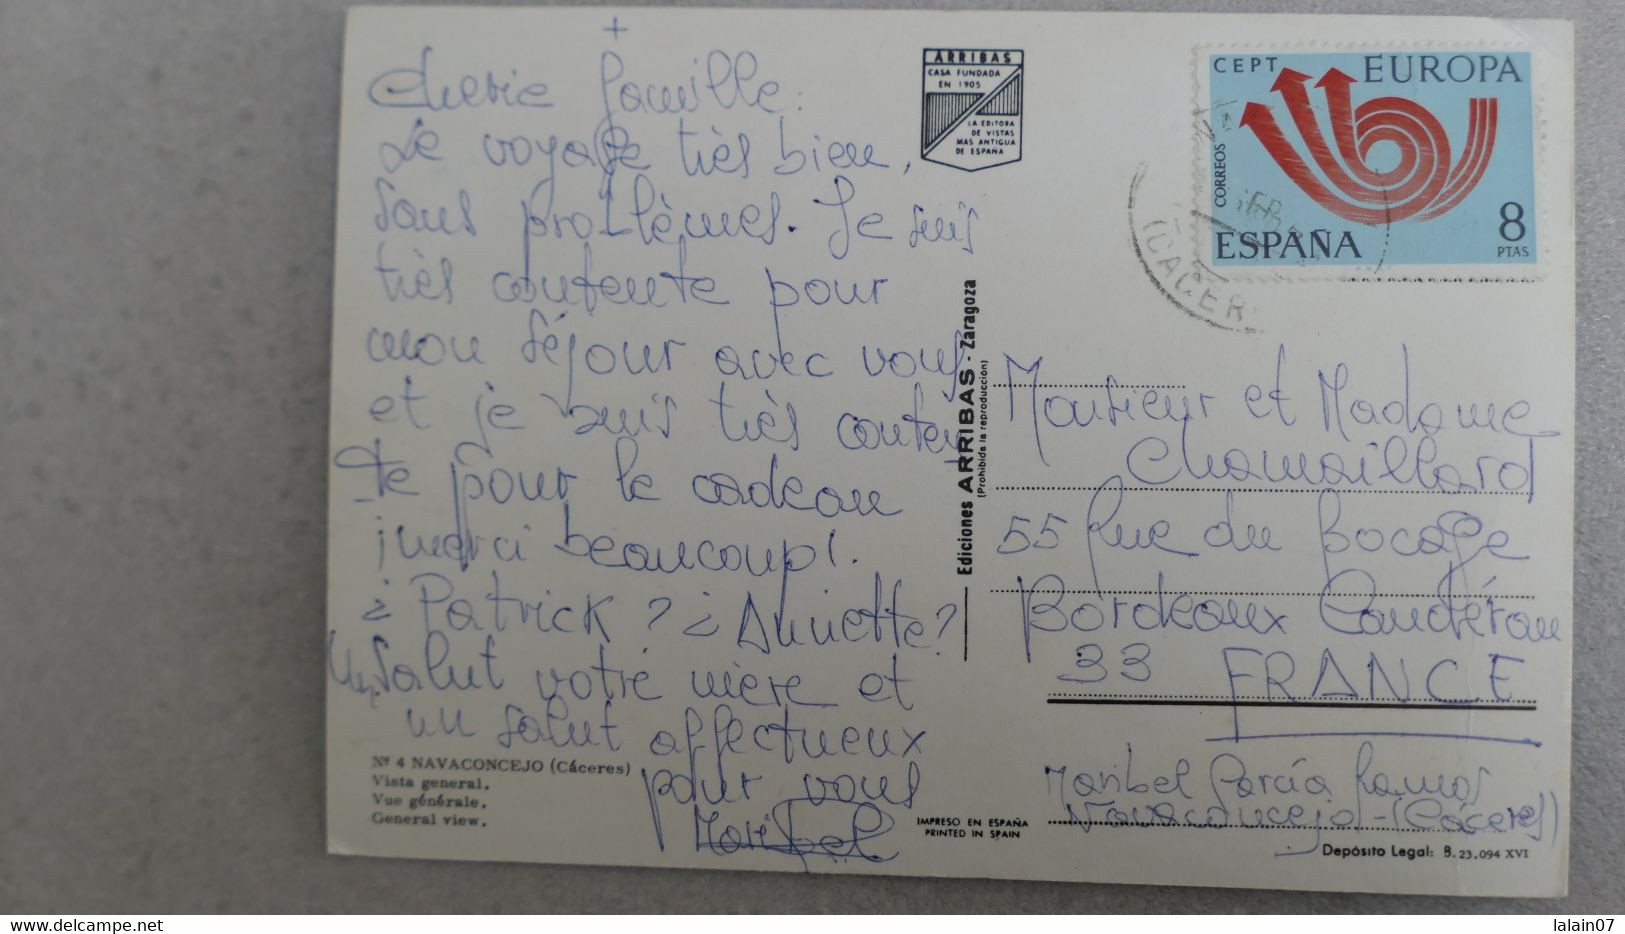 +
Cherie famille:
Le voyage très bien,
sans problèmes. Je suis
très contente pour
mon séjour avec vous
et je suis très conten
te pour le cadeau
¡merci beaucoup!.
¿Patrick? ¿Annette?
Un salut votre mère et
un salut affectueux
pour vous
Maribel
Nº 4 NAVACONCEJO (Cáceres)
Vista general,
Vue générale,
General view,
ARRIBAS
CASA FUNDADA
EN 1905
LA EDITORA
DE VISTAS
MAS ANTIGUA
DE ESPAÑA
Ediciones ARRIBAS - Zaragoza
(Prohibida la reproducción)
IMPRESO EN ESPAÑA
PRINTED IN SPAIN
CEPT EUROPA
CORREOS
ESPAÑA
8
PTAS
(CACER
Monsieur et Madame
Chamaillard
55 Rue du Bocage
Bordeaux Caudéran
33 FRANCE
Maribel García Ramos
Navaconcejo-(Cáceres)
Depósito Legal: B. 23.094 XVI
lalain07